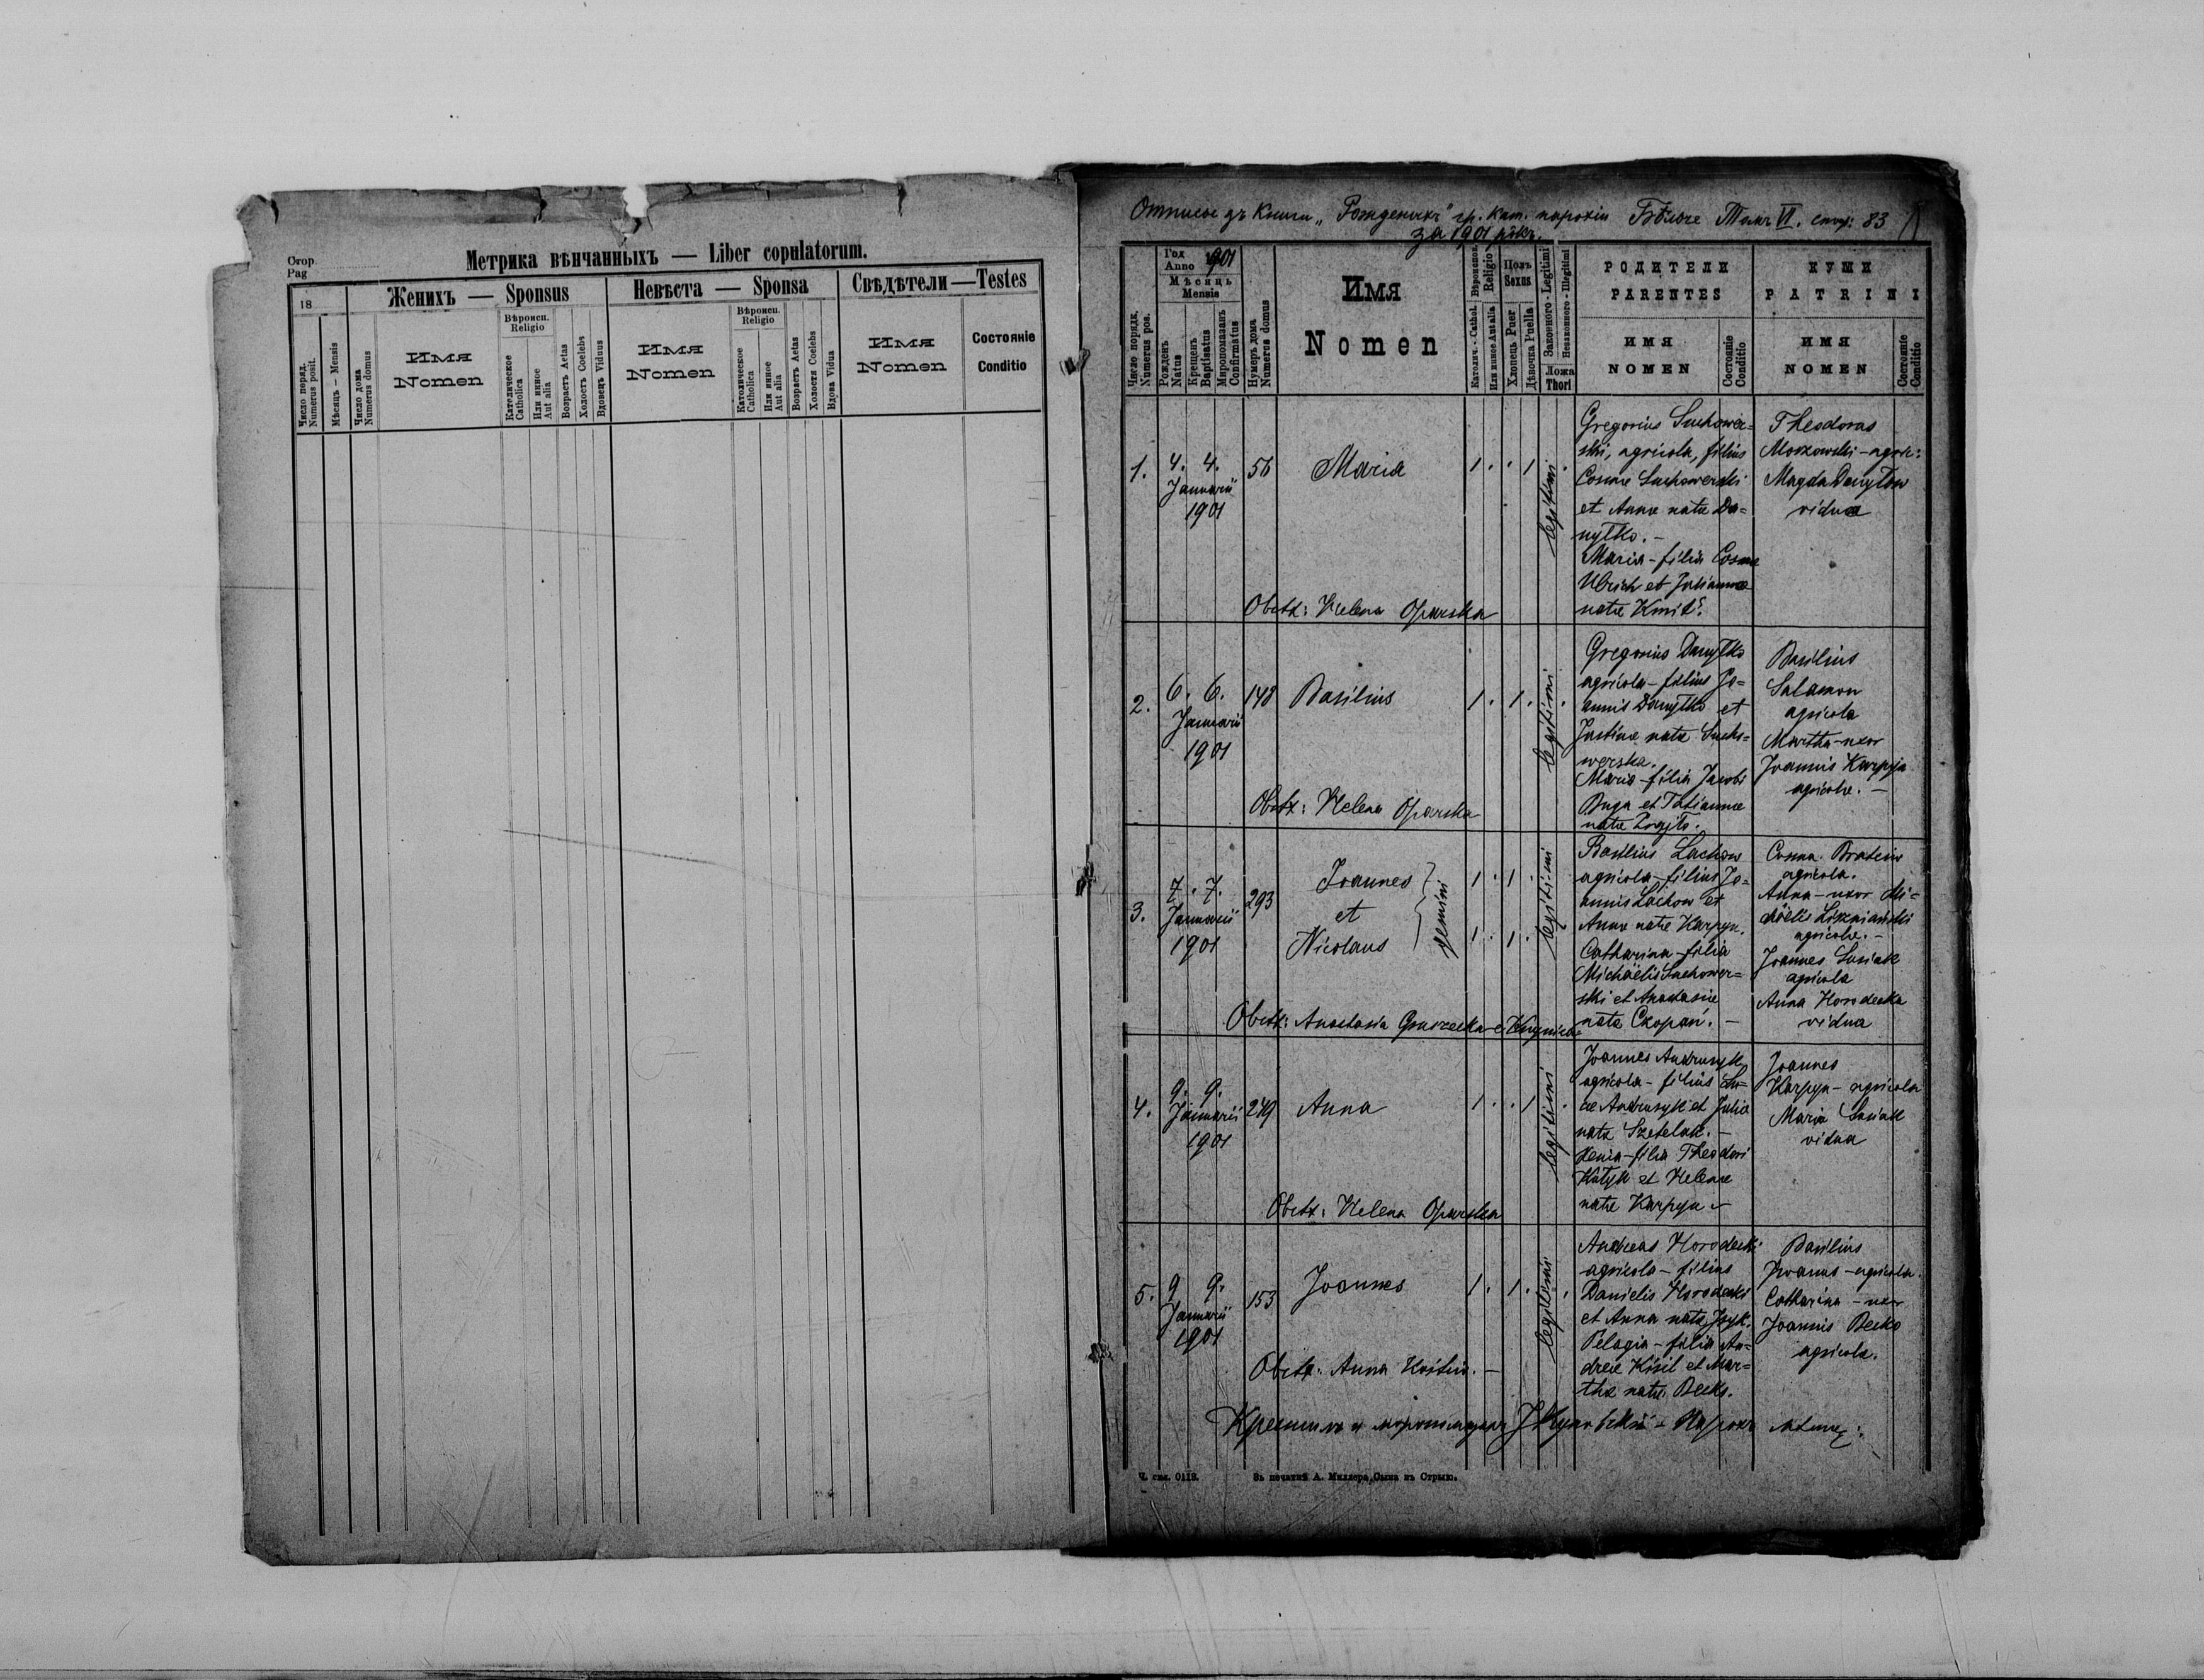 Стор.
Pag
Метрика вѣнчанныхъ — Liber copulatorum.
18
Женихъ — Sponsus
Невѣста — Sponsa
Свѣдѣтели — Testes
Число поряд.
Numerus posit.
Мѣсяцъ – Mensis
Число дома
Numerus domus
Имя
Nomen
Вѣроисп.
Religio
Католическое
Catholica
Или инное
Aut alia
Возрастъ Aetas
Холостъ Coelebs
Вдовецъ Viduus
Имя
Nomen
Вѣроисп.
Religio
Католическое
Catholica
Или инное
Aut alia
Возрастъ Aetas
Холоста Coelebs
Вдова Vidua
Имя
Nomen
Состояніе
Conditio
Отписъ зъ Книги „Рожденыхъ" гр. кат. парохіи Бѣльче Томъ VI. стор: 83
за 1901 рôкъ.
Число порядк.
Numerus pos.
Год
Anno 1901
Мѣсяцъ
Mensis
Рожденъ
Natus
Крещенъ
Baptisatus
Миропомазанъ
Confirmatus
Нумеръ дома
Numerus domus
Имя
Nomen
Вѣроиспов.
Religio
Католич. - Cathol.
Или инное Aut alia
Полъ
Sexus
Хлопецъ Puer
Дѣвочка Puella
Законного - Legitimi
Незаконного - Illegitimi
Ложа
Thori
РОДИТЕЛИ
PARENTES
ИМЯ
NOMEN
Состояніе
Conditio
КУМИ
PATRINI
ИМЯ
NOMEN
Состояніе
Conditio
1.
4. 4.
Januarii
1901
56
Maria
1 . . 1 .
legitimi
Gregorius Suchower=
ski, agricola, filius
Cosmæ Suchowerski
et Annæ natæ Da=
nyłko. –
Maria – filia Cosmæ
Ulrich et Julianna
natæ Kmit.
Theodorus
Moszowski – agric:
Magda Danyłow
vidua
Obstx: Helena Oparska
2.
6. 6.
Januarii
1901
148
Basilius
1 . 1 . .
legitimi
Gregorius Danyłko
agricola – filius Jo=
annis Danyłko et
Justinæ natæ Sucho=
werska.
Maria – filia Jacobi
Buga et Tatiannæ
natæ
Basilius
Salamon
agricola
Martha – uxor
Joannis Karpyn
agricolæ. –
Obstx: Helena Oparska
3.
7. 7.
Januarii
1901
293
Joannes
et
Nicolaus
gemini
1 . 1 .
1 . 1 .
legitimi
Basilius Lachow
agricola – filius Jo=
annis Lachow et
Annæ natæ Karpyn.
Catharina – filia
Michäelis Suchower=
ski et Anastasiæ
natæ Czopań. –
Cosma
agricola.
Anna – uxor Mi=
chäelis
agricolæ. –
Joannes Susiak
agricola
Anna Horodecka
vidua
Obstx: Anastasia
4.
9. 9.
Januarii
1901
249
Anna
1 . . 1 .
legitimi
Joannes Andrusyk
agricola – filius Lu=
cæ Andrusyk et Julia
natæ Szetelak. –
Xenia – filia Theodori
Kotyk et Helenæ
natæ Karpyn –
Joannes
Karpyn – agricola
Maria Susiak
vidua
Obstx: Helena Oparska
5.
9 9.
Januarii
1901
153
Joannes
1 . 1 . .
legitimi
Andreas Horodecki
agricola – filius
Danielis Horodecki
et Anna natæ
Pelagia – filia An=
dreæ Kisil et Mar=
thæ natæ Becko.
Basilius
Iwanus – agricola.
Catharina – uxor
Joannis Becko
agricola.
Obstx: Anna
Крестилъ и миропомазалъ
Ч. скл. 0113.
Зъ печатнѣ А. Миллера Сына въ Стрыю.